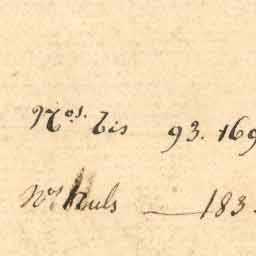 Nos. bis 93. 169
Nos nuls — 183.